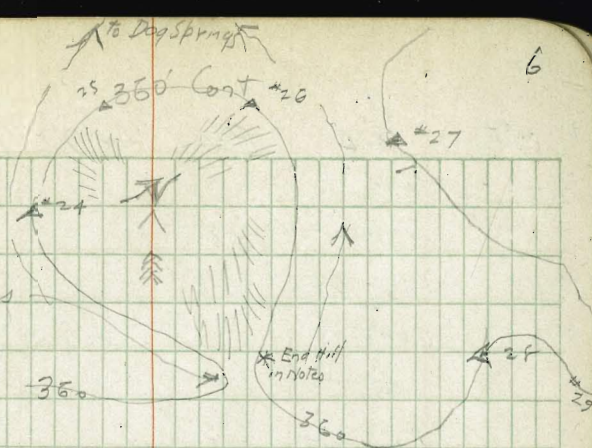 to Dog Springs
6
25 360' Cont #26
#27
#24
* End Hill
in Notes
28
360
#29
360